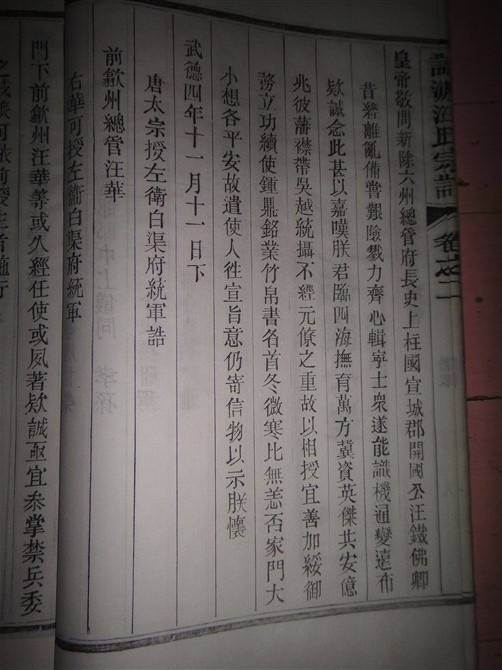 皇帝敬問新除六州總管府長史上柱國宣城郡開國公汪鐵佛卿
昔嬰離亂備嘗艱險戮力齊心輯寧士衆遂能識機通變遠布
欵誠念此甚以嘉嘆朕君臨四海撫育萬方冀資英傑共安億
兆彼藩襟帶吳越統攝不經元僚之重故以相授宜善加綏御
務立功績使鍾鼎銘業竹帛書名首冬微寒比無恙否家門大
小想各平安故遣使人徃宣旨意仍寄信物以示朕懷
武德四年十一月十一日下
唐太宗授左衛白渠府統軍誥
前歙州總管汪華
右華可授左衛白渠府統軍
門下前歙州汪華等或久經任使或夙著欵誠亟宜叅掌禁兵委
之
可依前授主者施行
汪氏宗譜
卷之二